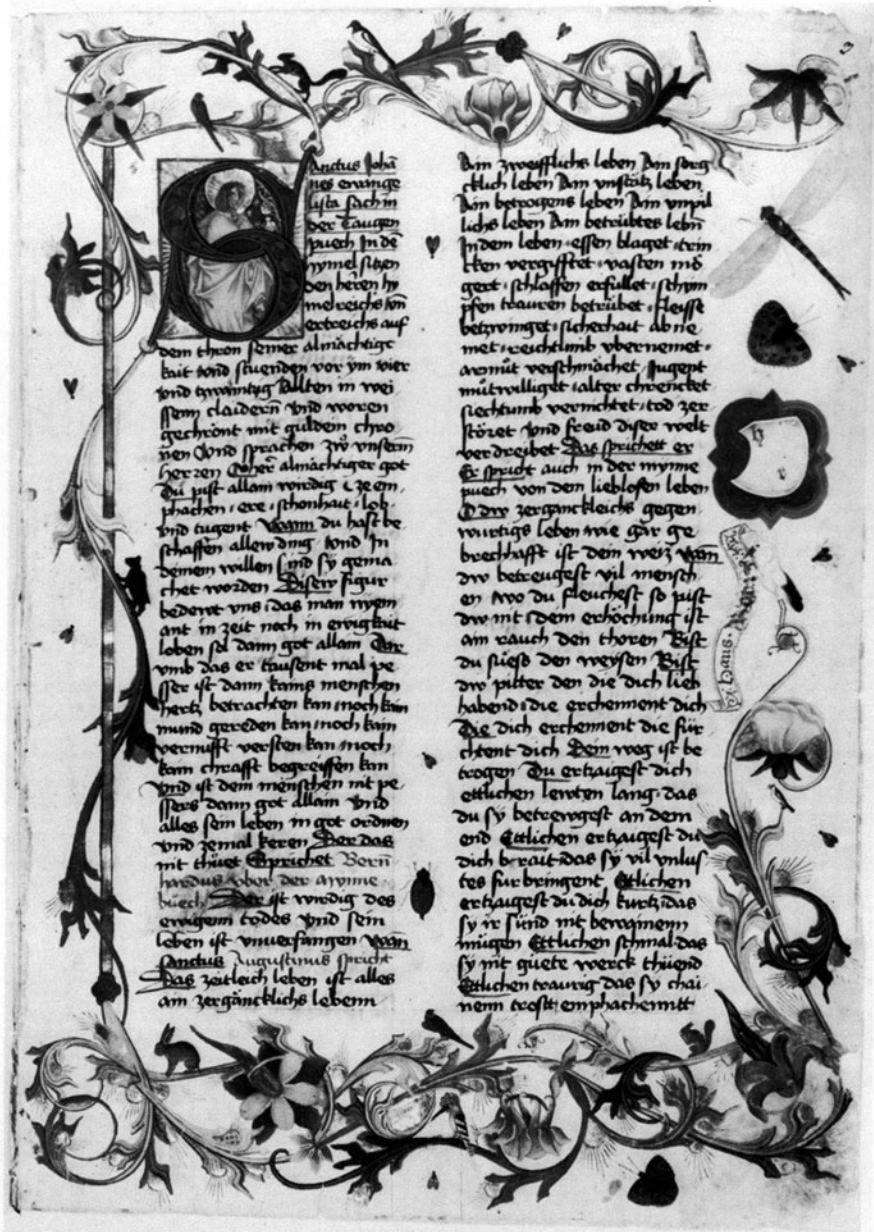 Sanctus Johā
nes ewange
lista sach in
der Taugen
puech In dē
hymel sitzen
den herren hy
melreichs vnd
ertreichs auf
dem thron seiner almachtigk
kait vnd stuenden vor ym vier
vnd zwaintzig Allten in wei
ssem claidern vnd woren
gechrönt mit guldein chro
nen Vnd sprachen zw vnserm
herren O herr almächtiger got
Du pist allain wirdig ze em
phachen ere schonhait lob
vnd tugent wann du hast be
schaffen allew ding vnd In
deinem willen sind sy gema
chet worden Disew figur
bedewt vns das man nyem
ant in zeit noch in ewigkait
loben sol dann got allain Dar
vmb das er tausent mal pe
sser ist dann kains menschen
hertz betrachten kan noch kain
mund gereden kan noch kain
vernufft versten kan noch
kain chrafft begreiffen kan
Vnd ist dem menschen nit pe
ssers dann got allain Vnd
alles sein leben in got ordnen
vnd zemal keren Der das
nit thüet Sprichet Bern
hardus vber der mynne
buech Der ist wirdig des
ewigenn todes Vnd sein
leben ist vnuerfangen wan
Sanctus Augustinus spricht
Das zeitleich leben ist alles
ain zergäncklichs lebenn
Ain zweifflichs leben Ain sorg
cklich leben Ain vnstätz leben
Ain betrogens leben Ain vnpil
lichs leben Ain betrübtes lebn
In dem leben essen blaget trin
cken vergifftet vasten mö
gert schlaffen erfullet schym
pfen trauren betrübet fleisse
betzwinget sicherhait ab ne
met reichtumb vbernemet
armüt verschmächet Jugent
mütwilliget alter chrencket
siechtumb vernichtet tod zer
störet Vnd freud diser welt
verdreibet Das sprichett er
Er spricht auch in der mynne
puech von dem lieblosen leben
O dw zerganckleichs gegen
wurtigs leben wie gar ge
brechhafft ist dein weiz wān
dw betreugest vil mensch
en wo du fleuchest so pist
dw nit dein erhöchung ist
ain rauch den thoren Bist
du süess den weysen Bist
dw pitter den die dich lieb
habend die erchennent dich
Die dich erchennent die für
chtent dich Dein weg ist be
trogen Du ertzaigest dich
ettlichen lewten lang das
du sy betrewgest an dem
end Ettlichen ertzaigest du
dich brait das sy vil vnlus
tes furbringent Etlichen
ertzaigest du dich kurtz das
sy ir sünd nit bewainenn
mügen Ettlichen schmal das
sy nit güete werck thüend
Ettlichen traurig das sy chai
nenn trostt emphachenntt